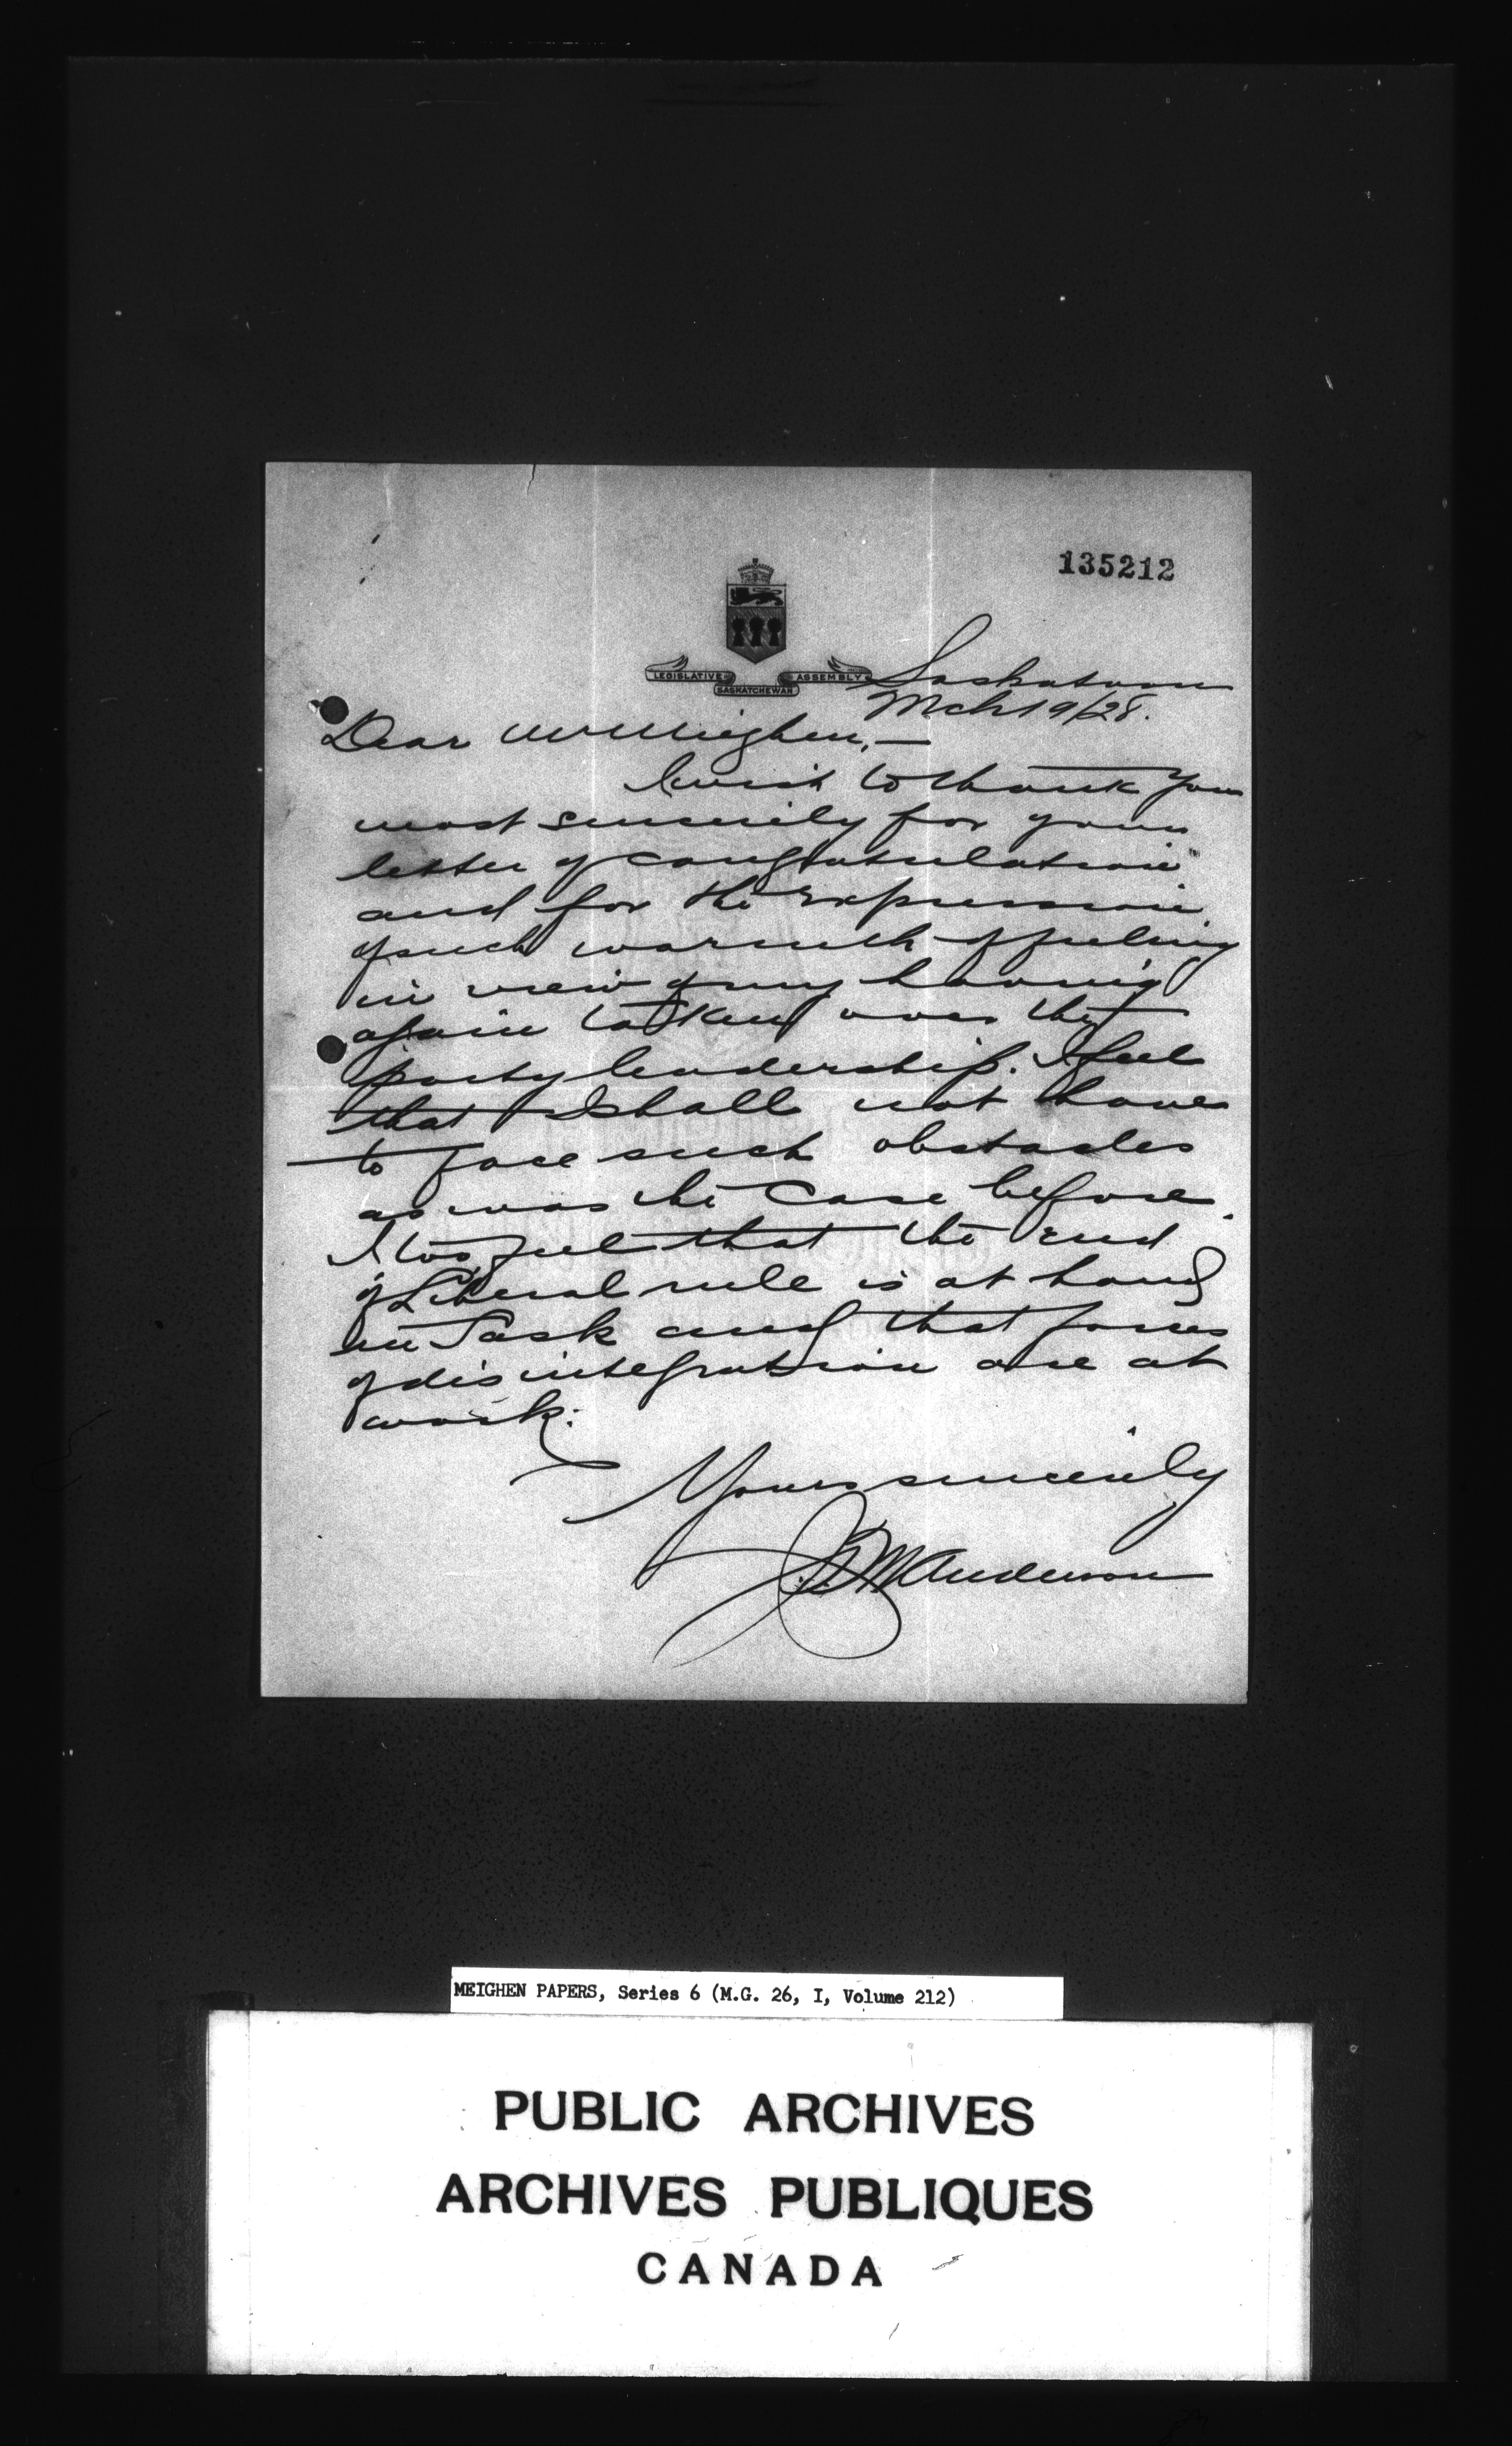 135212
LEGISLATIVE ASSEMBLY
SASKATCHEWAN
Saskatoon
Mch 19/28.
Dear Mr Meighen,—
I wish to thank you
most sincerely for your
letter of congratulation
and for the expression
of such warmth of feeling
in view of my having
again taken over the
party leadership. I feel
that I shall not have
to face such obstacles
as was the case before.
I too, feel that the end
of Liberal rule is at hand
in Sask and that forces
of disintegration are at
work.
Yours sincerely
J.T.M. Anderson
MEIGHEN PAPERS, Series 6 (M.G. 26, I, Volume 212)
PUBLIC ARCHIVES
ARCHIVES PUBLIQUES
CANADA